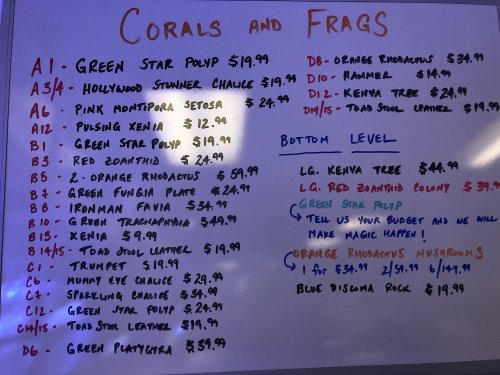 CORALS AND FRAGS
A1 - GREEN STAR POLYP $19.99
A3/4 - HOLLYWOOD STUNNER CHALICE $19.99
A6 - PINK MONTIPORA SETOSA $24.99
A12 - PULSING XENIA $12.99
B1 - GREEN STAR POLYP $19.99
B3 - RED ZOANTHID $24.99
B5 - 2 - ORANGE RHODACTUS $59.99
B7 - GREEN FUNGIA PLATE $24.99
B8 - IRONMAN FAVIA $34.99
B10 - GREEN TRACHAPHYLIA $44.99
B13 - XENIA $9.99
B14/15 - TOAD STOOL LEATHER $19.99
C1 - TRUMPET $19.99
C6 - MUMMY EYE CHALICE $29.99
C7 - SPARKLING CHALICE $34.99
C12 - GREEN STAR POLYP $24.99
C14/15 - TOAD STOOL LEATHER $19.99
D6 - GREEN PLATYGYRA $39.99
D8 - ORANGE RHODACTUS $34.99
D10 - HAMMER $14.99
D12 - KENYA TREE $24.99
D14/15 - TOAD STOOL LEATHER $19.99
BOTTOM LEVEL
LG. KENYA TREE $44.99
LG. RED ZOANTHID COLONY $39.99
GREEN STAR POLYP
TELL US YOUR BUDGET AND WE WILL
MAKE MAGIC HAPPEN!
ORANGE RHODACTUS MUSHROOMS
1 for $34.99 2/59.99 6/149.99
BLUE DISCOMA ROCK $19.99